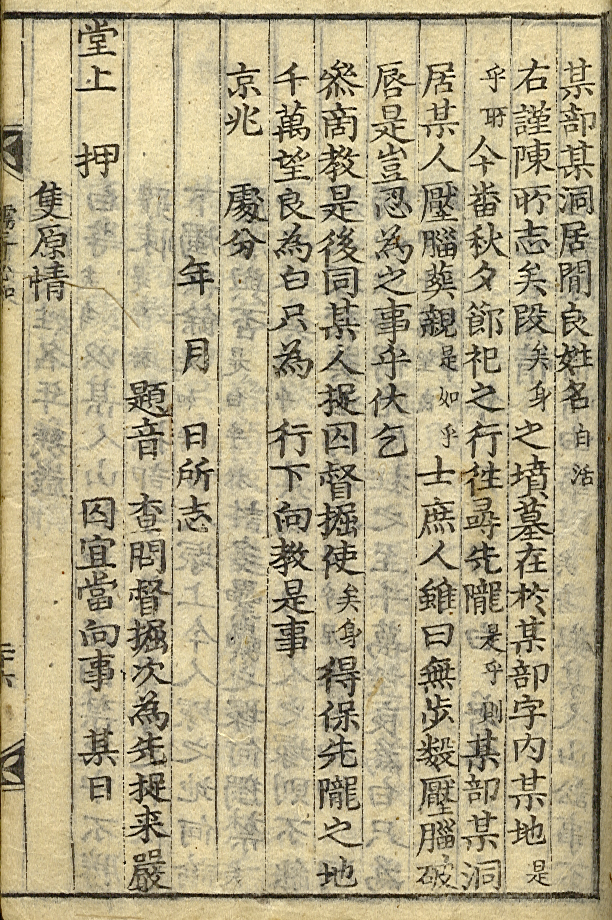 某部某洞居閒良姓名白活
右謹陳所志矣段矣身之墳墓在於某部字内某地是
乎所今番秋夕節祀之行徃尋先隴是乎則某部某洞
居某人壓腦葬親是如乎士庶人雖曰無步數壓腦破
唇是豈忍為之事乎伏乞
叅商教是後同某人捉囚督掘使矣身得保先隴之地
千萬望良為白只為 行下向教是事
京兆 處分
年 月 日所志
題音 查問督掘次為先捉来嚴
堂上 押 囚宜當向事 某日
隻原情